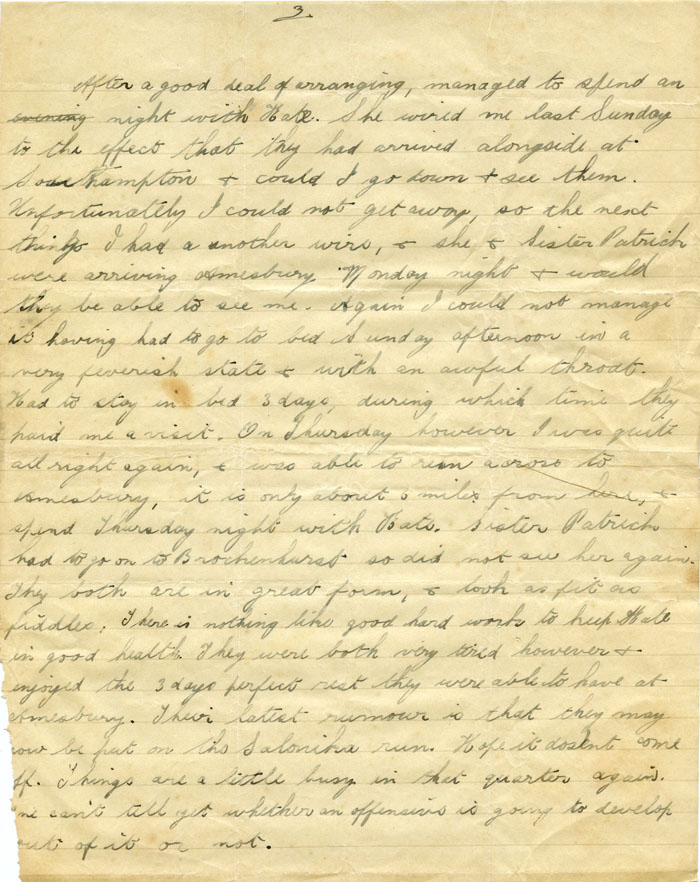 3.
After a good deal of arranging, managed to spend an
evening night with Kate. She wired me last Sunday
to the effect that they had arrived alongside at
Southampton & could I go down & see them.
Unfortunately I could not get away, so the next
thing I had a another wire, & she & Sister Patrick
were arriving Amesbury Monday night & would
they be able to see me. Again I could not manage
it having had to go to bed Sunday afternoon in a
very feverish state & with an awful throat.
Had to stay in bed 3 days, during which time they
paid me a visit. On Thursday however I was quite
all right again, & was able to run across to
Amesbury, it is only about miles from here, &
spend Thursday night with Kate. Sister Patrick
had to go on to Brockenhurst so did not see her again.
They both are in great form, & look as fit as
fiddles. There is nothing like good hard work to keep Kate
in good health. They were both very tired however &
enjoyed the 3 days perfect rest they were able to have at
Amesbury. Their latest rumour is that they may
now be put on the Salonika run. Hope it dosent come
ff. Things are a little busy in that quarter again.
ne can't tell yet whether an offensive is going to develop
out of it or not.